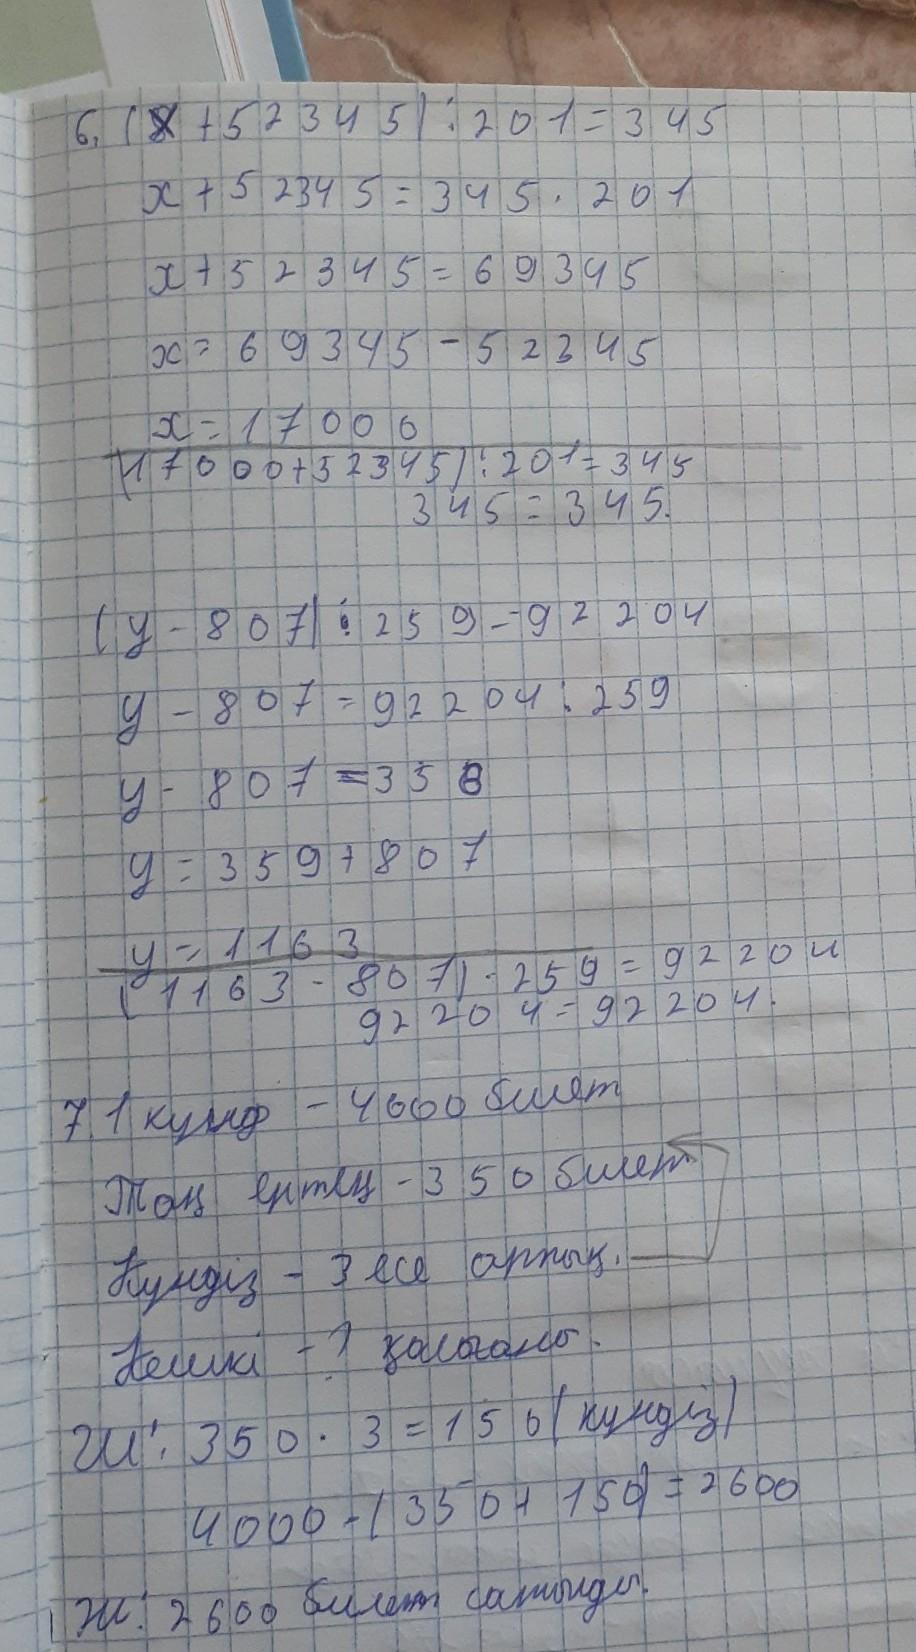 6. (x + 52345) : 201 = 345
x + 52345 = 345 · 201
x + 52345 = 69345
x = 69345 - 52345
x = 17000
(17000 + 52345) : 201 = 345
345 = 345.
(y - 807) : 259 = 92204
y - 807 = 92204 : 259
y - 807 = 358
y = 359 + 807
y = 1163
(1163 - 807) · 259 = 92204
92204 = 92204.
7. 1 күнде - 4000 билет
Таң ертең - 350 билет
Күндіз - 3 есе артық.
Кешкі - ? қалғаны.
Ш: 350 · 3 = 150 (күндіз)
4000 - (350 + 150) = 2600
Ж: 2600 билет сатылды.